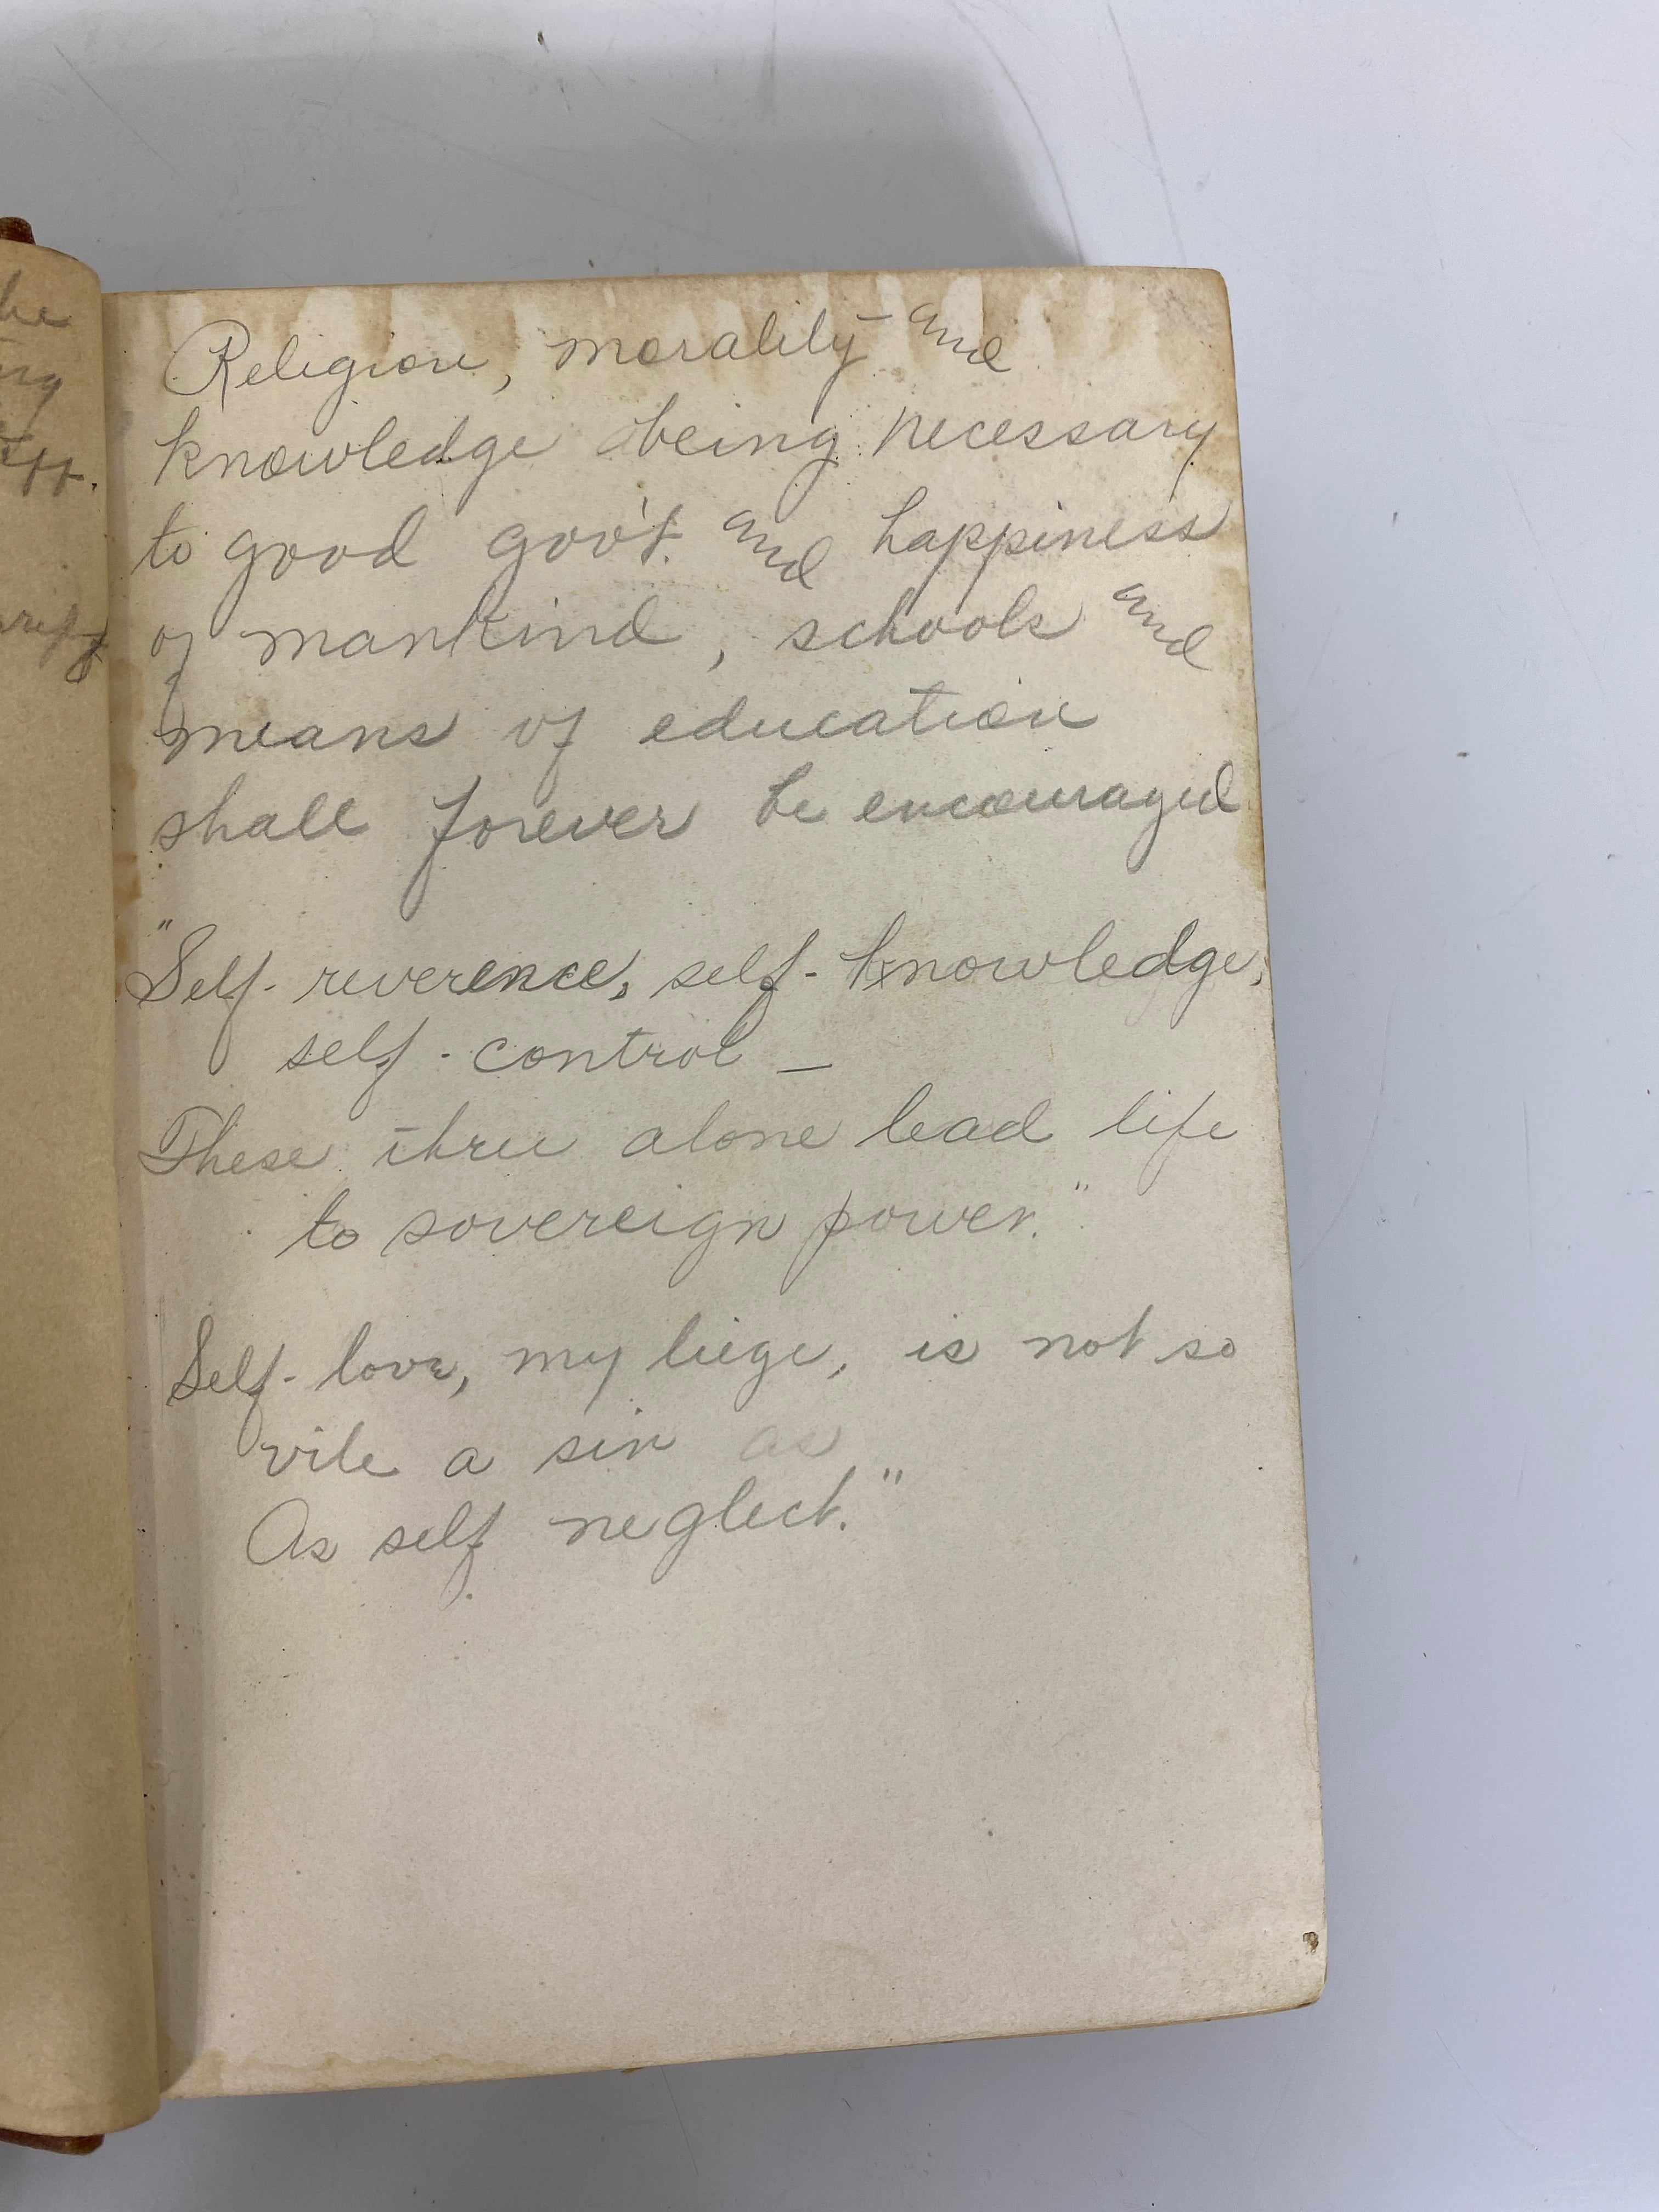 Religion, morality and
knowledge being necessary
to good gov't. and happiness
of mankind, schools and
means of education
shall forever be encouraged
"Self-reverence, self-knowledge,
self-control —
These three alone lead life
to sovereign power."
Self-love, my liege, is not so
vile a sin as
As self neglect."